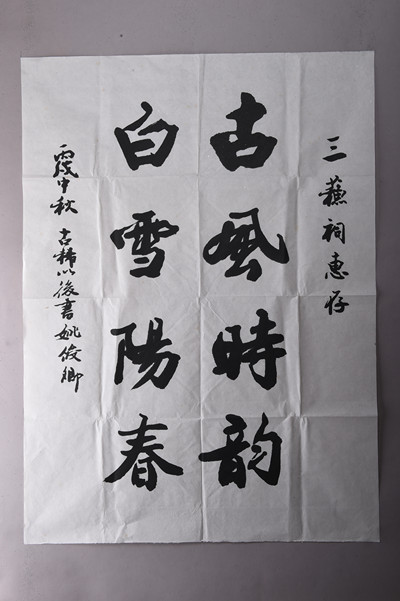 三蘇祠惠存
古風時韵
白雪陽春
丙戌中秋 古稀以後書 姚俊卿